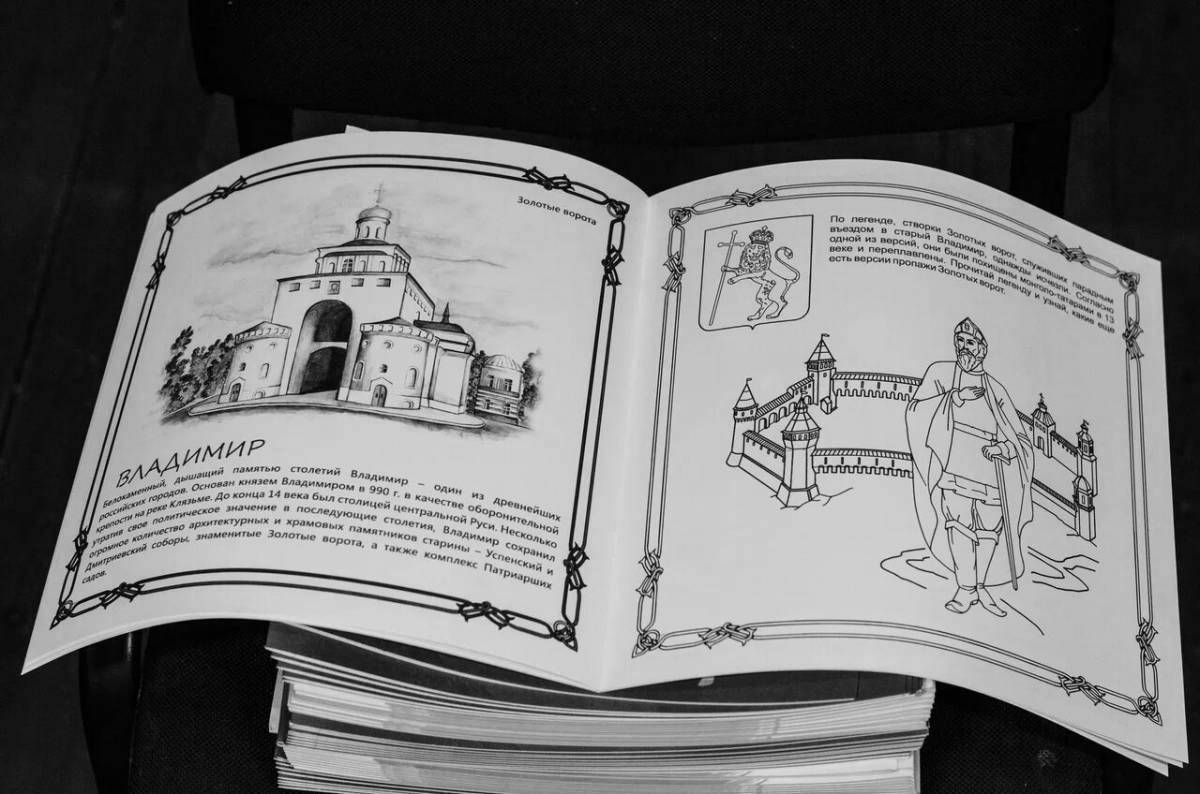 Золотые ворота
ВЛАДИМИР
Белокаменный, дышащий памятью столетий Владимир – один из древнейших
российских городов. Основан князем Владимиром в 990 г. в качестве оборонительной
крепости на реке Клязьме. До конца 14 века был столицей центральной Руси. Несколько
утратив свое политическое значение в последующие столетия, Владимир сохранил
огромное количество архитектурных и храмовых памятников старины – Успенский и
Дмитриевский соборы, знаменитые Золотые ворота, а также комплекс Патриарших
садов.
По легенде, створки Золотых ворот, служивших парадным
въездом в старый Владимир, однажды исчезли. Согласно
одной из версий, они были похищены монголо-татарами в 13
веке и переплавлены. Прочитай легенду и узнай, какие еще
есть версии пропажи Золотых ворот.